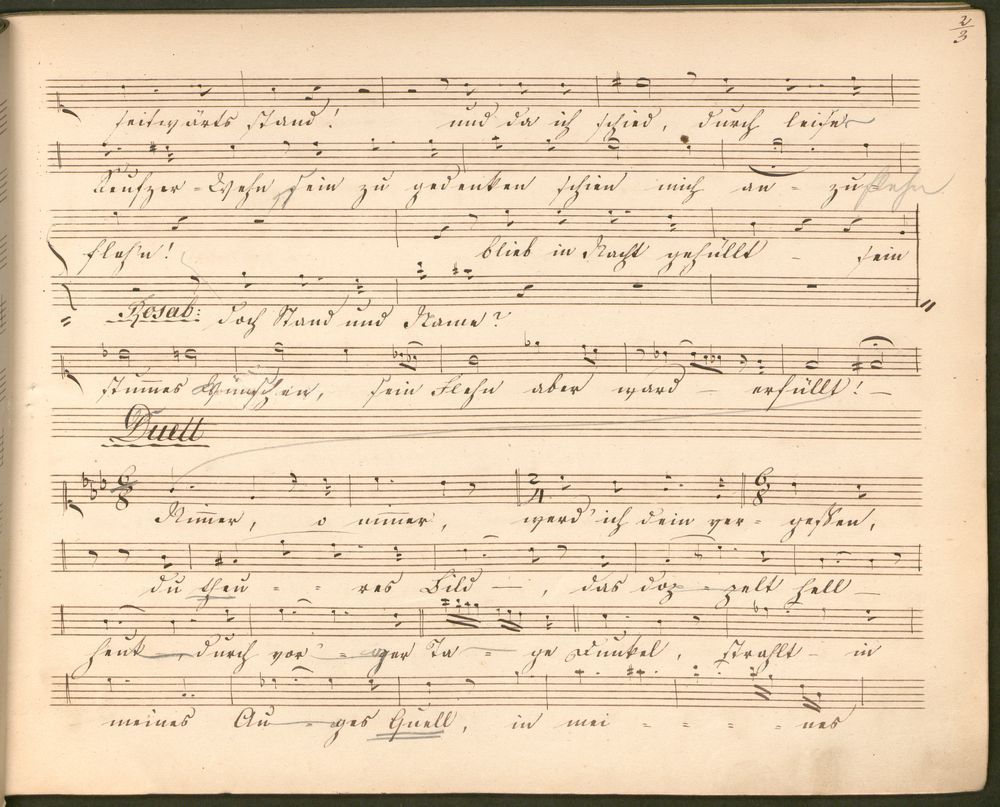 2/3
seitwärts stand! und da ich schied, durch leises
Seufzer-Wehn sein zu gedenken schien mich an - zuflehn
flehn! blieb in Nacht gehüllt - sein
Rosab: doch Stand und Name?
stummes Wünschen, sein Flehn aber ward erfüllt! -
Duett
6/8 2/4 6/8
Nimmer, o nimmer, werd' ich dein ver- gessen,
du theu - - res Bild -, das dop - pelt hell -
heut -, durch vor' - ger Ta - ge Dunkel, strahlt - in
meines Au - ges Quell, in mei - - - - nes